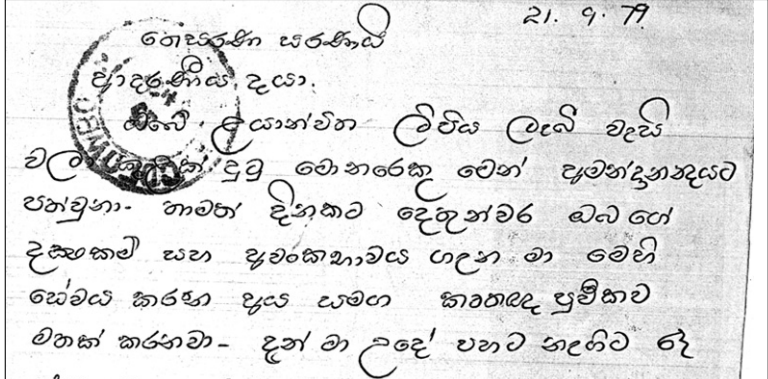 21. 9. 79
තෙසරණ සරණයි
ආදරණීය දයා.
ඔබේ ළයාන්විත ලිපිය ලැබී වැසි
වලාකුළක් දුටු මොනරෙකු මෙන් අමන්දානන්දයට
පත්වුනා- තාමත් දිනකට දෙතුන්වර ඔබගේ
දක්ෂකම් සහ අවංකභාවය ගැන මා මෙහි
සේවය කරන අය සමග කෘතඥ පූර්වකව
මතක් කරනවා- දැන් මා උදේ පහට නැගිට රෑ